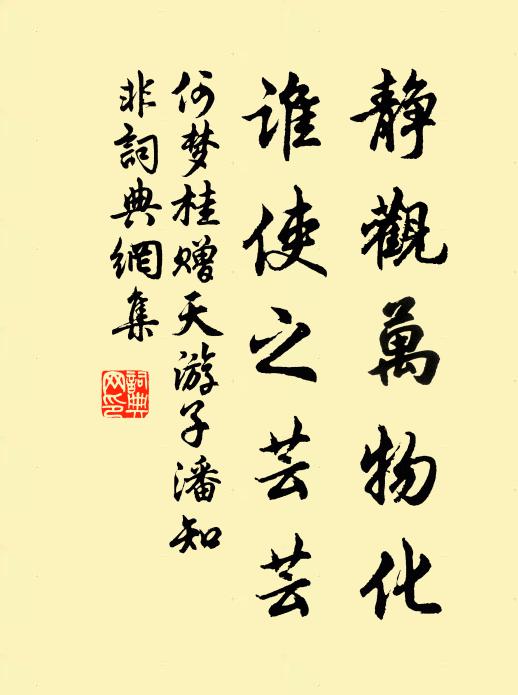 静觀萬物化
谁使之芸芸
何梦桂赠天游子潘知
非詞典網集
詞典網印